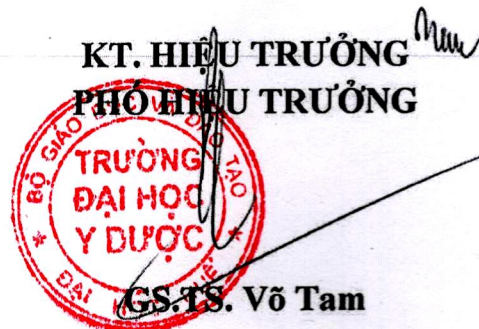 KT. HIỆU TRƯỞNG
PHÓ HIỆU TRƯỞNG
BỘ GIÁO DỤC VÀ ĐÀO TẠO
TRƯỜNG
ĐẠI HỌC
Y DƯỢC
GS.TS. Võ Tam